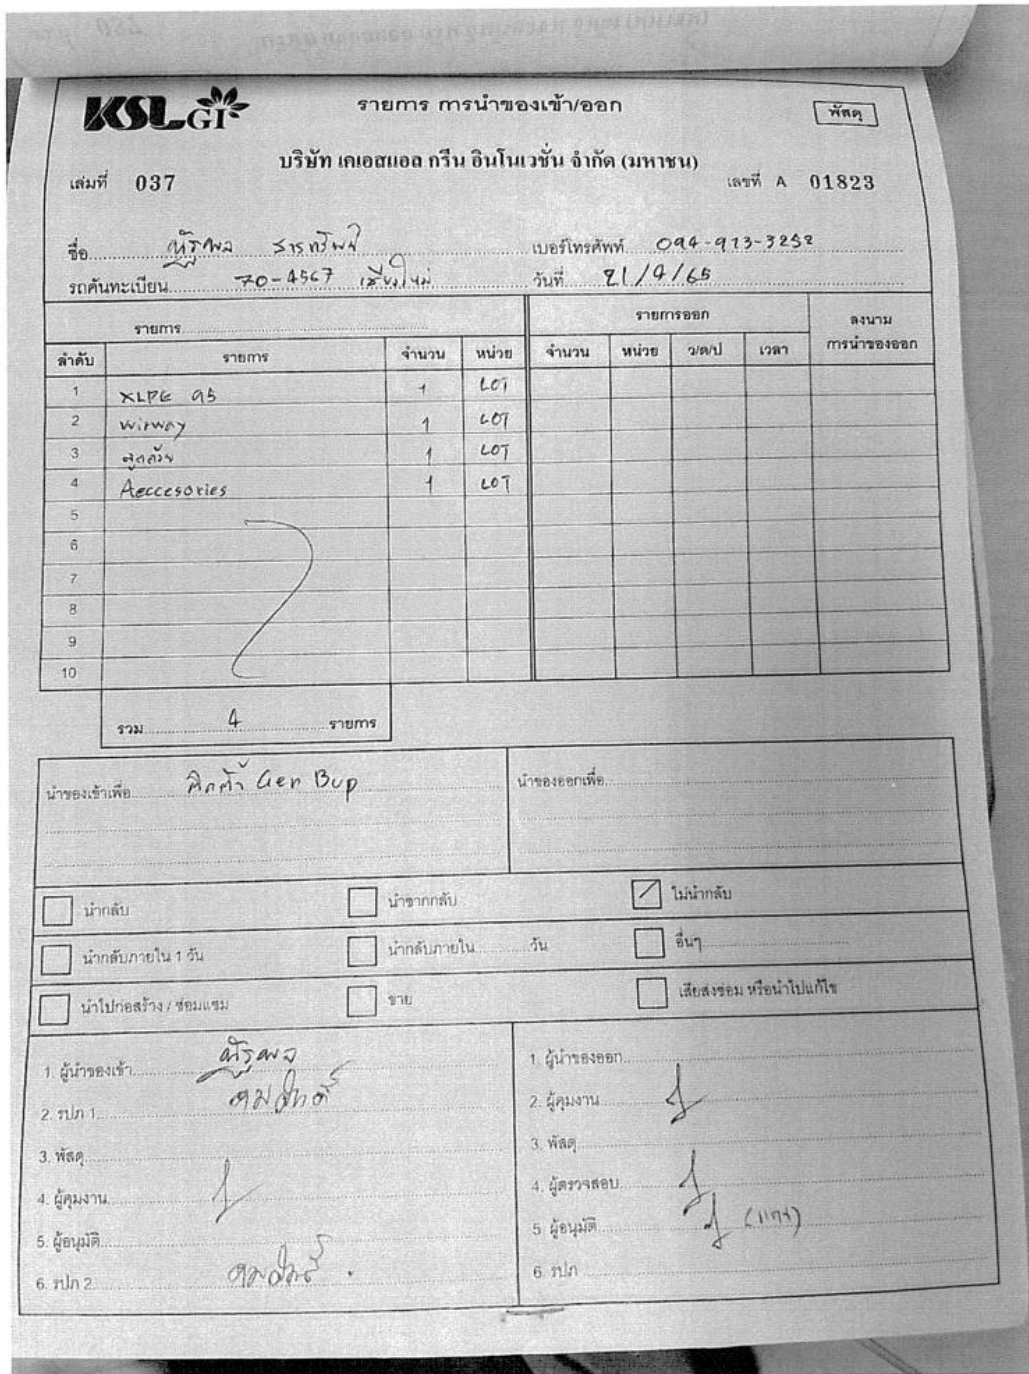 KSLGI
รายการ การนำของเข้า/ออก
พัสดุ
บริษัท เคเอสแอล กรีน อินโนเวชั่น จำกัด (มหาชน)
เล่มที่ 037
เลขที่ A 01823
ชื่อ ณัฐพล สารทรัพย์ เบอร์โทรศัพท์ 094-913-3252
รถคันทะเบียน 70-4567 เชียงใหม่ วันที่ 21/9/65
รายการ รายการออก ลงนาม การนำของออก
ลำดับ รายการ จำนวน หน่วย จำนวน หน่วย ว/ด/ป เวลา
1 XLPE 95 1 LOT
2 wirway 1 LOT
3 1 LOT
4 Aeccesories 1 LOT
5
6
7
8
9
10
รวม 4 รายการ
นำของเข้าเพื่อ ติดตั้ง Gen Bup นำของออกเพื่อ
นำกลับ นำซากกลับ ไม่นำกลับ
นำกลับภายใน 1 วัน นำกลับภายใน วัน อื่นๆ
นำไปก่อสร้าง / ซ่อมแซม ขาย เสียส่งซ่อม หรือนำไปแก้ไข
1. ผู้นำของเข้า ณัฐพล 1. ผู้นำของออก
2. รปภ 1 2. ผู้คุมงาน
3. พัสดุ 3. พัสดุ
4. ผู้คุมงาน 4. ผู้ตรวจสอบ
5. ผู้อนุมัติ 5. ผู้อนุมัติ (แทน)
6. รปภ 2 6. รปภ